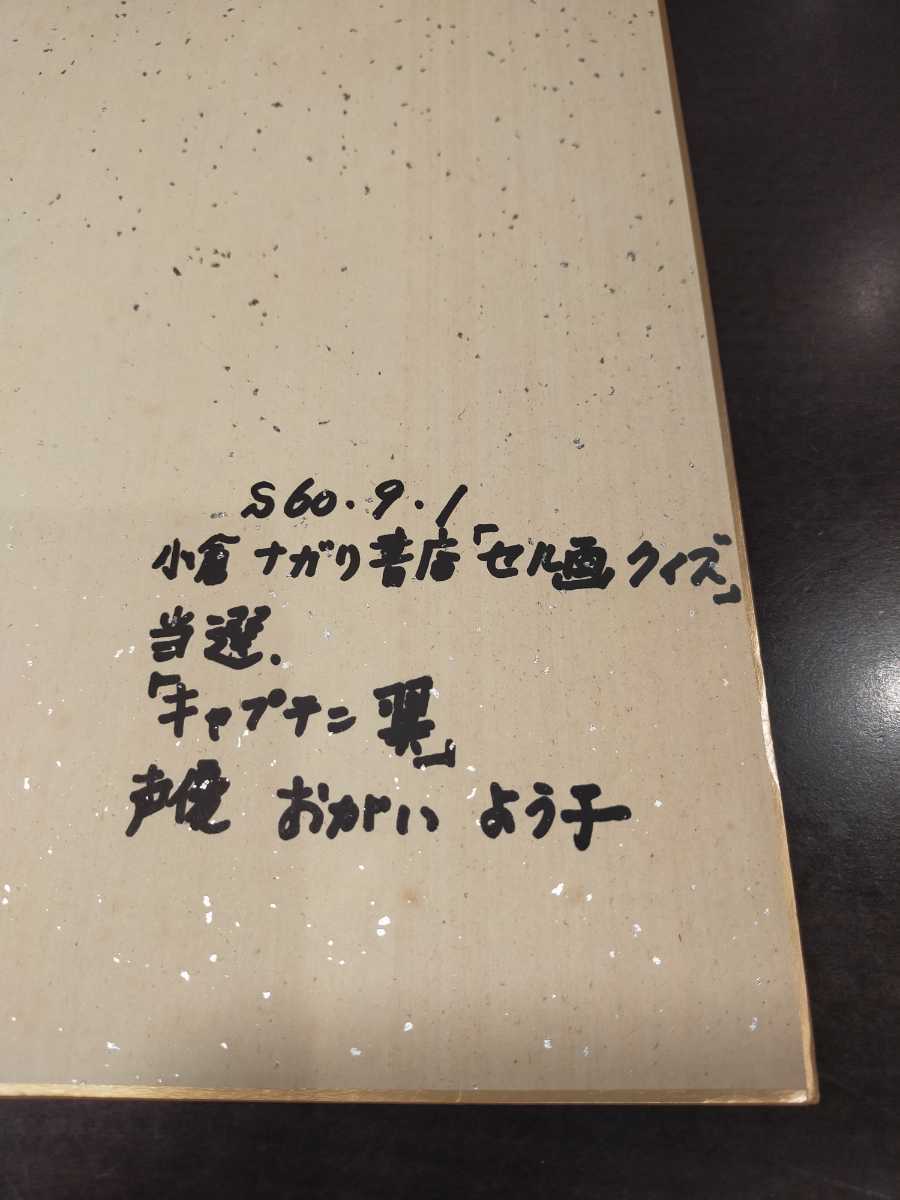 S60.9.1
小倉 ナガリ書店「セル画クイズ」
当選.
「キャプテン翼」
声優 おがい よう子